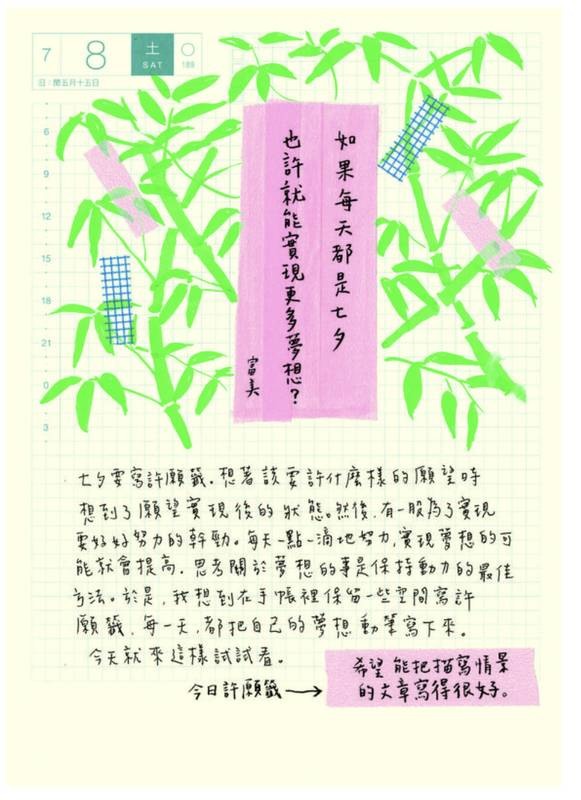 7
8
土
SAT
189
旧:閏五月十五日
6
9
12
15
18
21
0
3
如果每天都是七夕
也許就能實現更多夢想?
富美
七夕要寫許願籤。想著該要許什麼樣的願望時
想到了願望實現後的狀態。然後,有一股為了實現
要好好努力的幹勁。每天一點一滴地努力,實現夢想的可
能就會提高。思考關於夢想的事是保持動力的最佳
方法。於是,我想到在手帳裡保留一些空間寫許
願籤,每一天,都把自己的夢想動筆寫下來。
今天就來這樣試試看。
今日許願籤
希望能把描寫情景
的文章寫得很好。